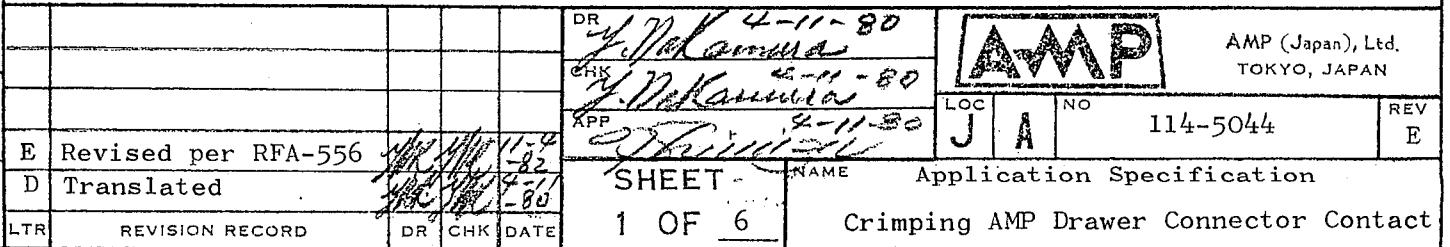 E Revised per RFA-556 11-4-82
D Translated 4-11-80
LTR REVISION RECORD DR CHK DATE
DR Y. Nakamura 4-11-80
CHK Y. Nakamura 4-11-80
APP 4-11-80
SHEET
1 OF 6
AMP
AMP (Japan), Ltd.
TOKYO, JAPAN
LOC
J A
NO
114-5044
REV
E
NAME
Application Specification
Crimping AMP Drawer Connector Contact